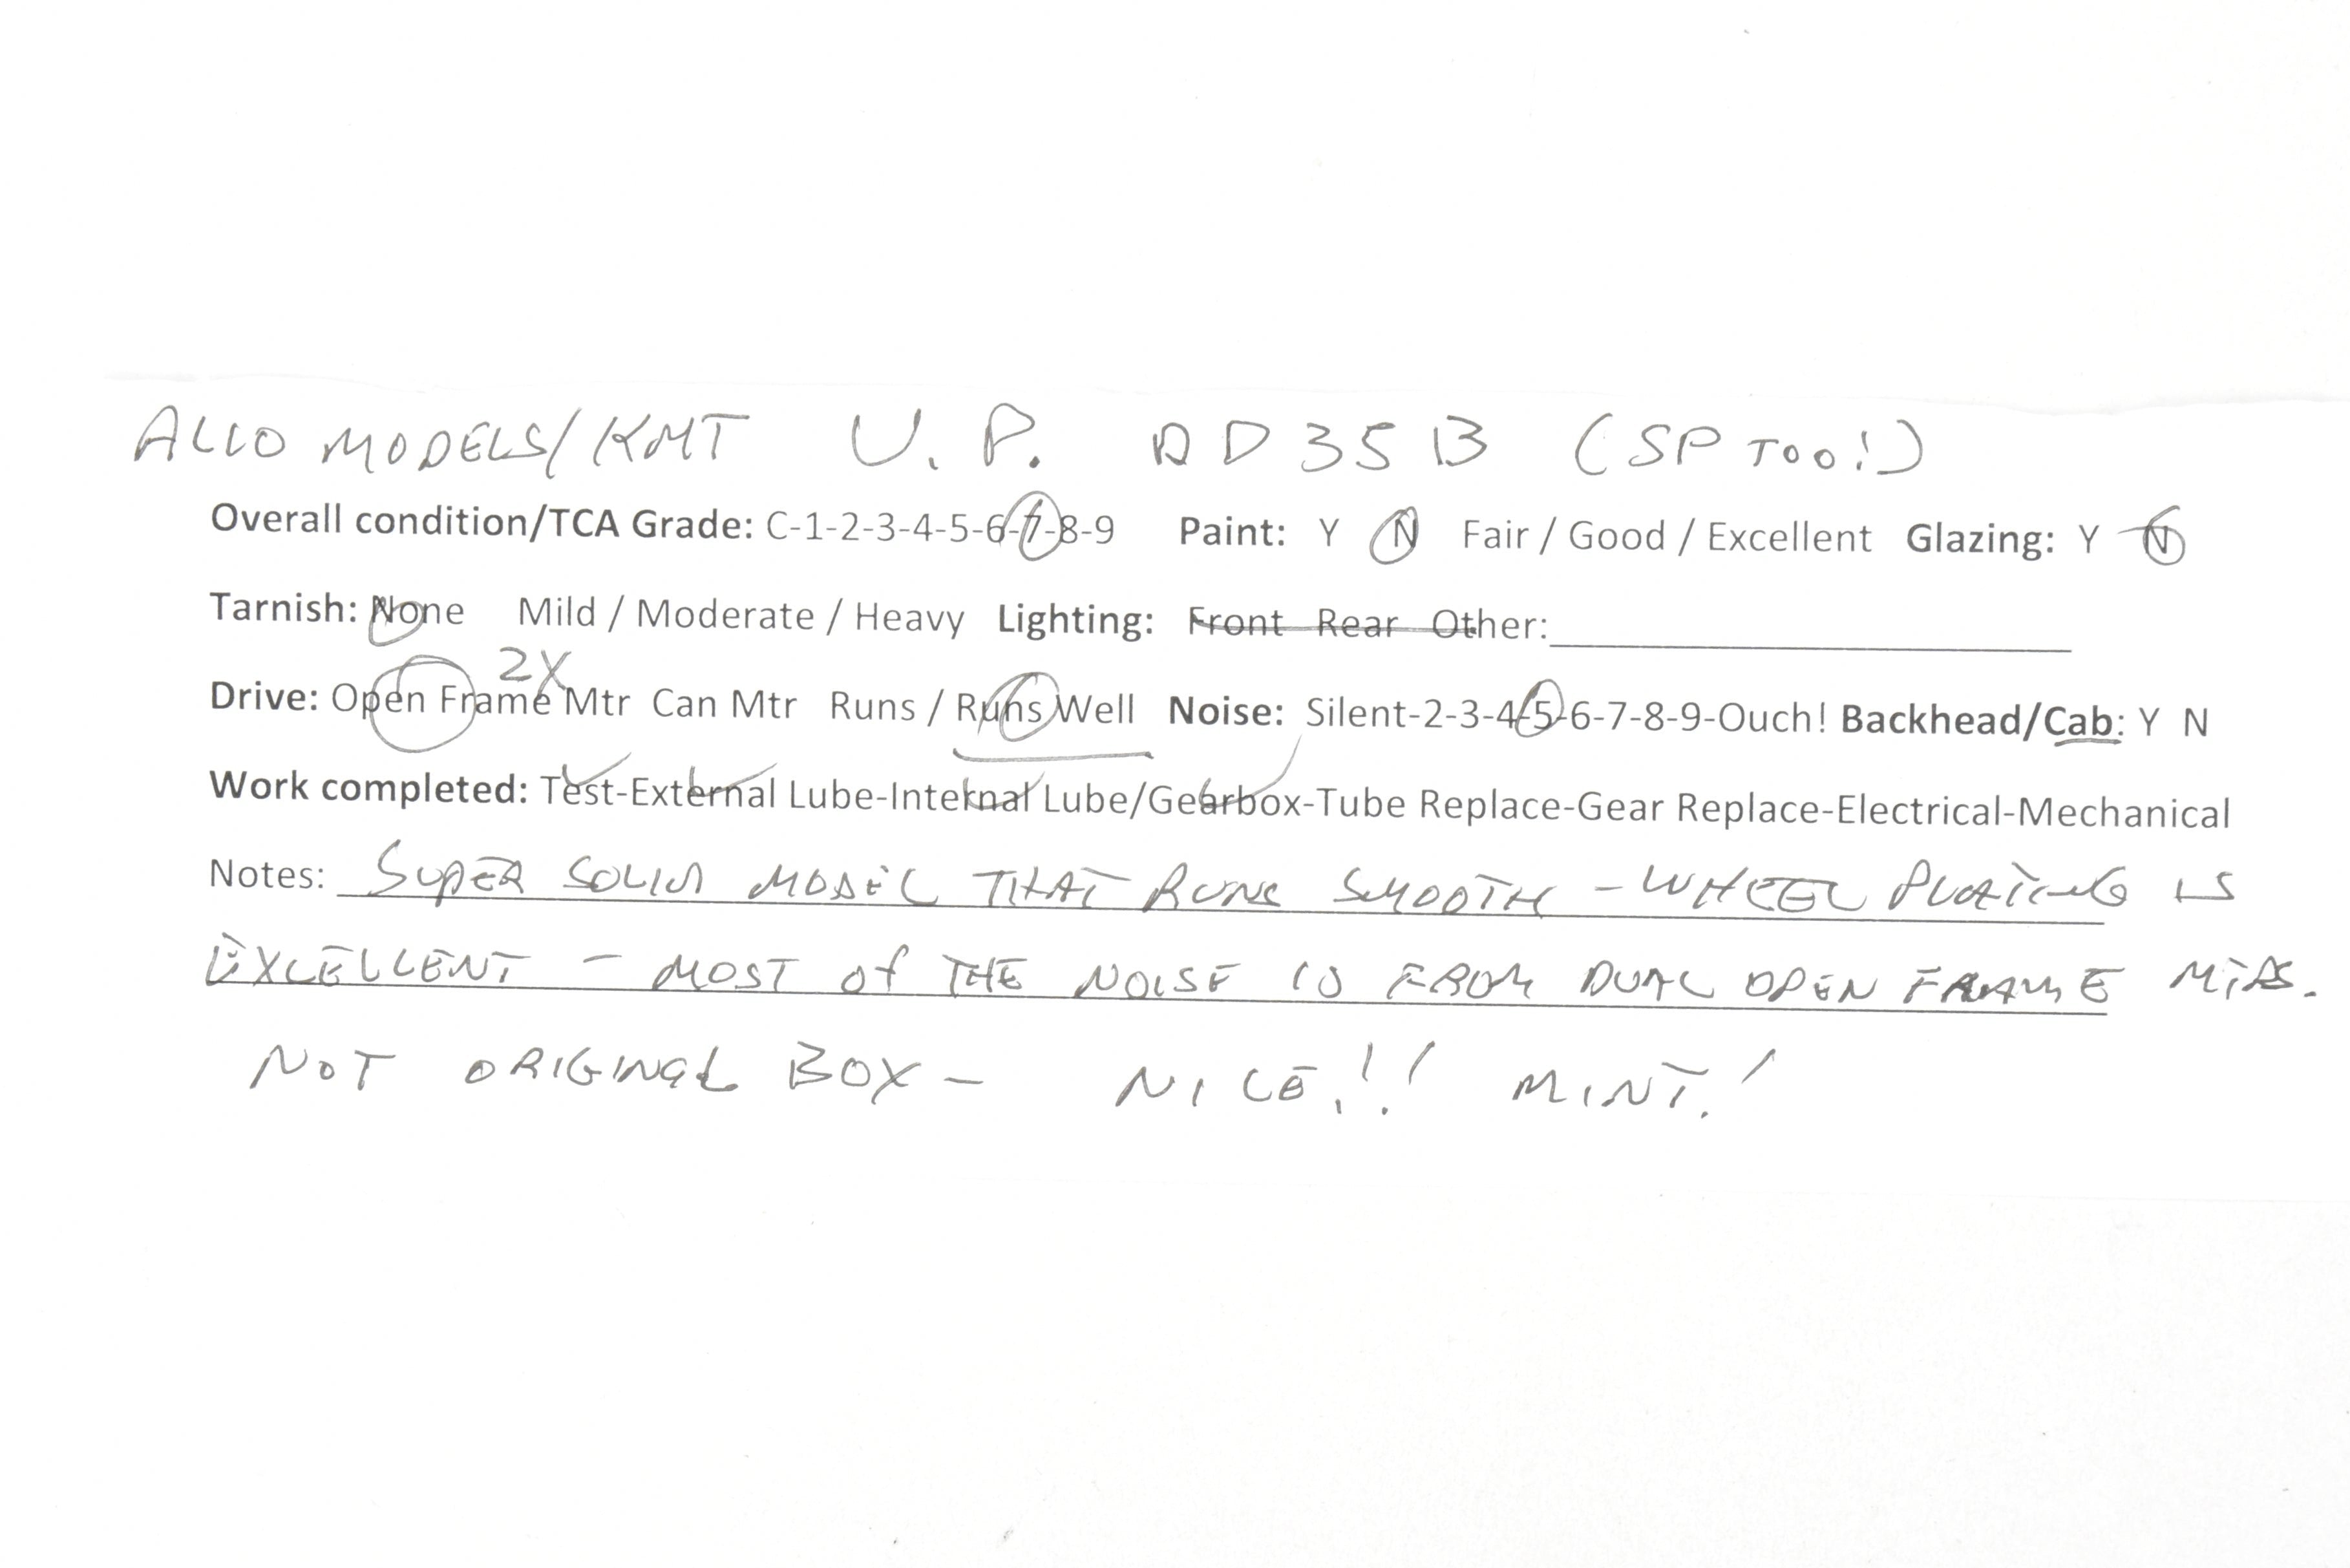 ALCO MODELS/KMT U.P. DD35B (SP TOO!)
Overall condition/TCA Grade: C-1-2-3-4-5-6-7-8-9 Paint: Y N Fair / Good / Excellent Glazing: Y N
Tarnish: None Mild / Moderate / Heavy Lighting: Front Rear Other:
2X
Drive: Open Frame Mtr Can Mtr Runs / Runs Well Noise: Silent-2-3-4-5-6-7-8-9-Ouch! Backhead/Cab: Y N
Work completed: Test-External Lube-Internal Lube/Gearbox-Tube Replace-Gear Replace-Electrical-Mechanical
Notes: SUPER SOLID MODEL THAT RUNS SMOOTH - WHEEL PLATING IS
EXCELLENT - MOST of THE NOISE IS FROM DUAL OPEN FRAME MTRS.
NOT ORIGINAL BOX - NICE!! MINT!